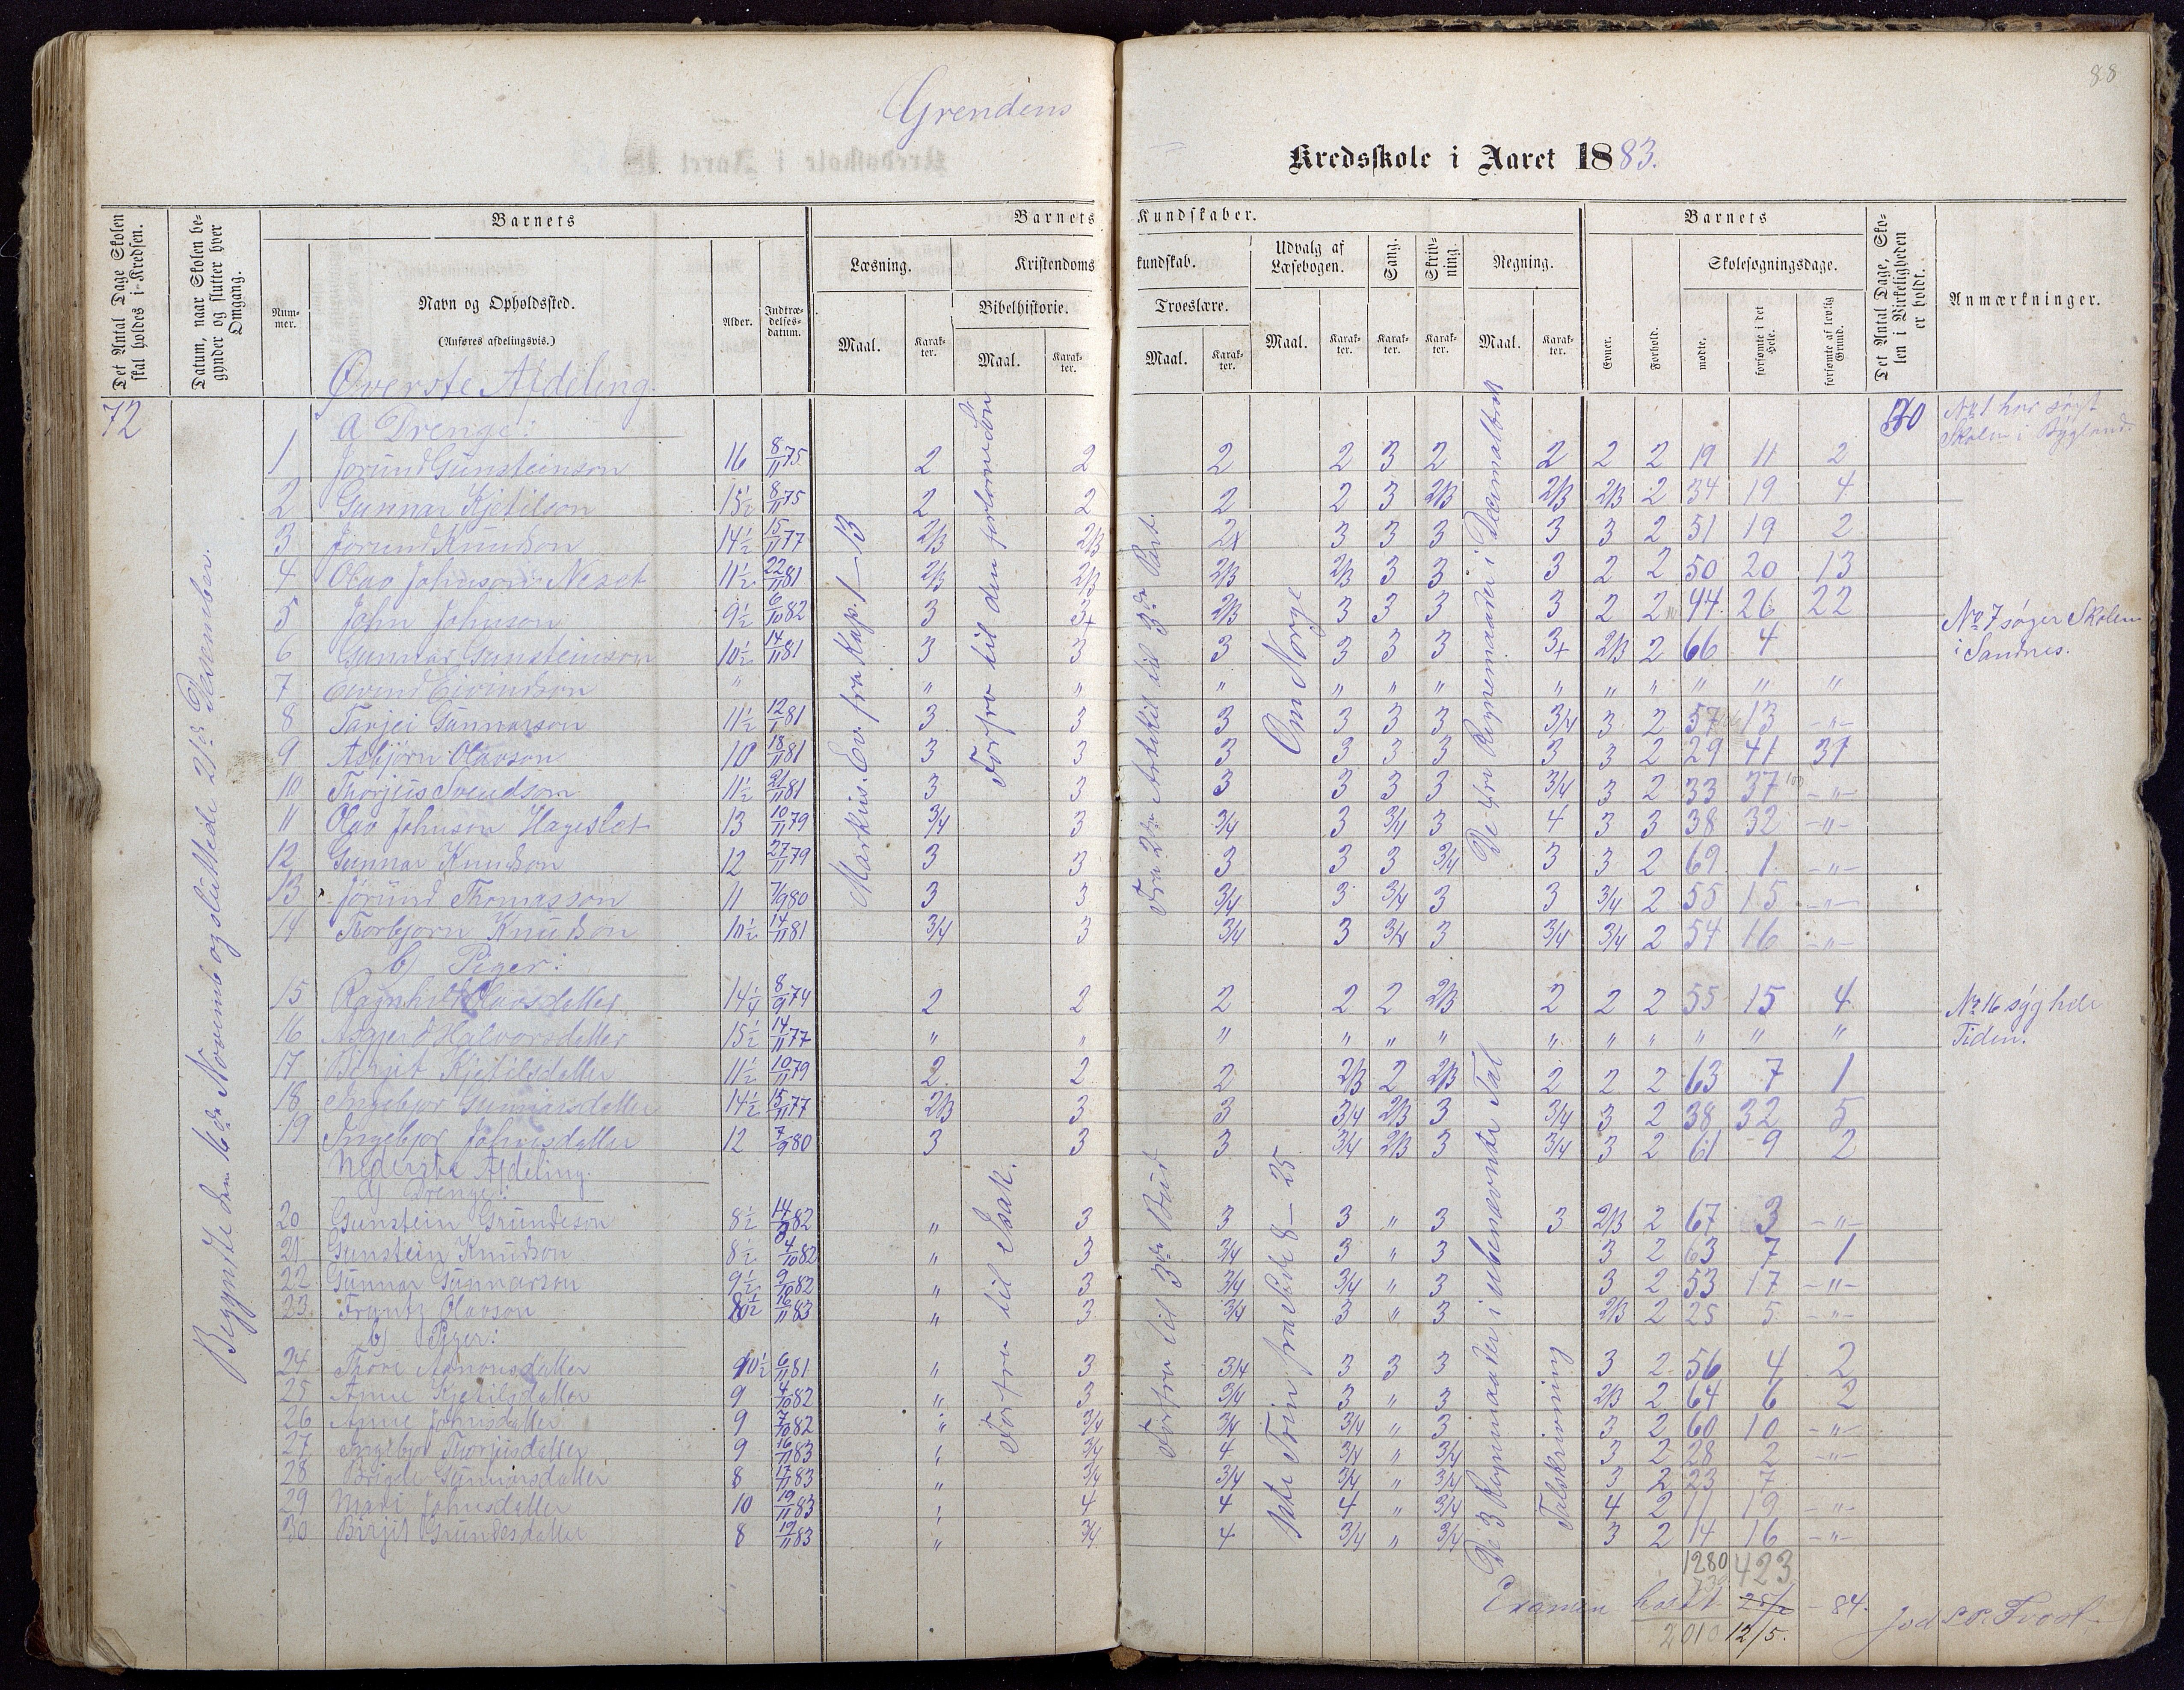 88
Grendens
Kredsskole i Aaret 1883.
Det Antal Dage Skolen skal holdes i Kredsen.
Datum, naar Skolen begynder og slutter hver Omgang.
Barnets
Nummer.
Navn og Opholdssted.
(Anføres afdelingsvis.)
Alder.
Indtrædelsesdatum.
Barnets Kundskaber.
Læsning.
Kristendomskundskab.
Bibelhistorie.
Troeslære.
Udvalg af Læsebogen.
Sang.
Skrivning.
Regning.
Maal.
Karakter.
Maal.
Karakter.
Maal.
Karakter.
Maal.
Karakter.
Karakter.
Karakter.
Maal.
Karakter.
Barnets
Evner.
Forhold.
Skolesøgningsdage.
mødte.
forsømte i det Hele.
forsømte af lovlig Grund.
Det Antal Dage, Skolen i Virkeligheden er holdt.
Anmærkninger.
72
Begyndte den 16de Novemb og sluttede 21de Desember.
Øverste Afdeling
a Drenge:
70
No 1 har søgt
Skolen i Bygland.
1 Jorund Gunsteinson 16 8/11 75 2 2 2 2 3 2 2 2 2 19 11 2
2 Gunnar Kjetilson 15½ 8/11 75 2 2 2 2 3 2/3 2/3 2/3 2 34 19 4
3 Jorund Knudson 14½ 15/11 77 2/3 2/3 2x 3 3 3 3 3 2 51 19 2
4 Olav Johnson Neset 11½ 22/11 81 2/3 2/3 2/3 2/3 3 3 3 2 2 50 20 13
5 John Johnson 9½ 6/10 82 3 3+ 2/3 3 3 3 3 2 2 44 26 22
6 Gunnar Gunsteinson 10½ 14/11 81 3 3 3 3 3 3 3+ 2/3 2 66 4
No 7 søger Skolen
i Sandnes.
7 Eivind Eivindson " " " " " " " " " " " " "
8 Tarjei Gunnarson 11½ 12/11 81 3 3 3 3 3 3 3/4 3 2 57 13 -"-
9 Asbjørn Olavson 10 18/11 81 3 3 3 3 3 3 3 3 2 29 41 37
10 Thorjus Svendson 11½ 21/11 81 3 3 3 3 3 3 3/4 3 2 33 37 -"-
11 Olav Johnson Hageslet 13 10/11 79 3/4 3 3/4 3 3/4 3 4 3 3 38 32 -"-
12 Gunnar Knudson 12 27/11 79 3 3 3 3 3 3/4 3 3 2 69 1 -"-
13 Jørund Thomasson 11 7/9 80 3 3 3/4 3 3/4 3 3 3/4 2 55 15 -"-
14 Torbjorn Knudson 10½ 14/11 81 3/4 3 3/4 3 3/4 3 3/4 3/4 2 54 16 -"-
Markus. Ev. fra Kap. 1-13
Forfra til den forlorne Søn
Fra 2den Artikel til 3de Part.
Om Norge
De fire Regnemaader i Decimalbrøk
b) Piger:
15 Ragnhild Olavsdatter 14¼ 8/9 74 2 2 2 2 2 2/3 2 2 2 55 15 4
No 16 syg hele
Tiden.
16 Asgjerd Halvorsdatter 15½ 14/11 77 " " " " " " " " " " " "
17 Birgit Kjetilsdatter 11½ 10/11 79 2 2 2 2/3 2 2/3 2 2 2 63 7 1
18 Ingebjor Gunnarsdatter 14½ 15/11 77 2/3 3 3 3/4 2/3 3 3/4 3 2 38 32 5
19 Ingebjor Johnsdatter 12 7/9 80 3 3 3 3/4 2/3 3 3/4 3 2 61 9 2
Nederste Afdeling.
a) Drenge:
20 Gunstein Grundeson 8½ 14/9 82 " 3 3 3 " 3 3 2/3 2 67 3 -"-
21 Gunstein Knudson 8½ 4/10 82 " 3 3/4 3 " 3 3 2 63 7 1
22 Gunnar Gunnarson 9½ 9/10 82 " 3 3/4 3/4 " 3 3 2 53 17 -"-
23 Frantz Olavson 8½ 16/11 83 " 3 3/4 3 " 3 2/3 2 25 5 -"-
b) Piger:
24 Thore Aanonsdatter 10½ 6/11 81 " 3 3/4 3 3 3 3 2 56 4 2
25 Anne Kjetilsdatter 9 4/10 82 " 3 3/4 3 " 3 2/3 2 64 6 2
26 Anne Johnsdatter 9 7/10 82 " 3/4 3/4 3/4 " 3 3 2 60 10 -"-
27 Ingebjor Thorjusdatter 9 16/11 83 " 3/4 4 3/4 " 3/4 3 2 28 2 -"-
28 Brigde Gunnarsdatter 8 17/11 83 " 3/4 3/4 3/4 " 3/4 3 2 23 7
29 Mari Johnsdatter 10 19/11 83 " 4 4 4 " 3/4 4 2 11 19 -"-
30 Birjit Grundesdatter 8 19/11 83 " 3/4 4 3/4 " 3/4 3 2 14 16 -"-
Forfra til Isak.
Forfra til 3de Bud
fra Side 8-25
De 3 Regnemaader i ubenævnte Tal
Talskrivning
1280 423
Examen holdt 25/2 - 84.
2010 12/5.